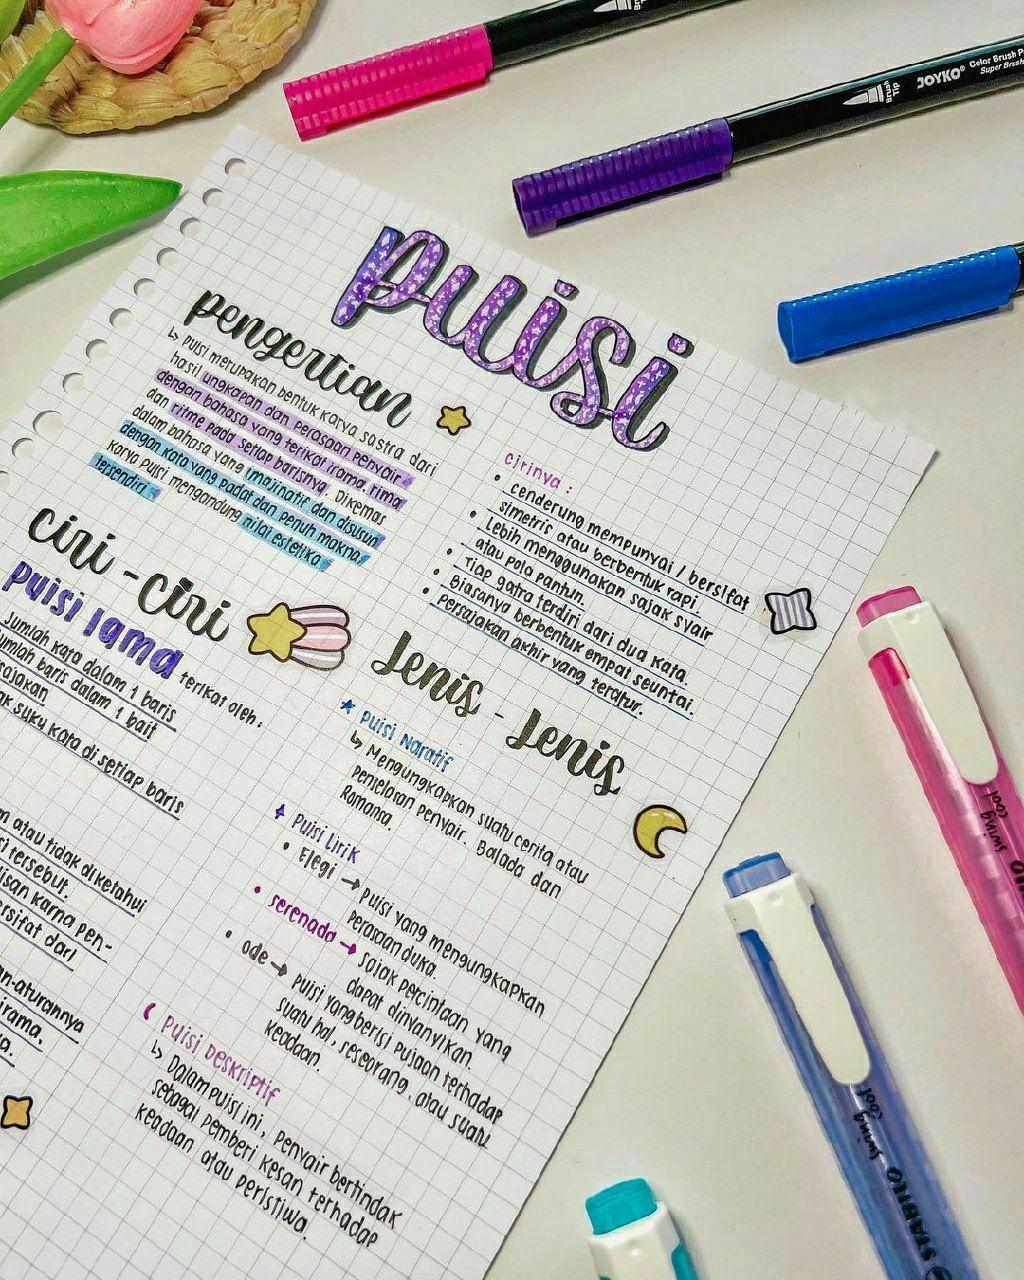 puisi
pengertian
↳ puisi merupakan bentuk karya sastra dari
hasil ungkapan dan perasaan penyair
dengan bahasa yang terikat irama, rima
dan ritme pada setiap barisnya. Dikemas
dalam bahasa yang imajinatif dan disusun
dengan kata yang padat dan penuh makna,
karya puisi mengandung nilai estetika
tersendiri.
ciri-ciri
puisi lama terikat oleh :
Jumlah kata dalam 1 baris
jumlah baris dalam 1 bait
sajakan
suku kata di setiap baris
atau tidak diketahui
tersebut.
lisan karna pen-
bersifat dari
-aturannya
irama,
cirinya :
• cenderung mempunyai / bersifat
simetris atau berbentuk rapi.
• Lebih menggunakan sajak syair
atau pola pantun.
• Tiap gatra terdiri dari dua kata.
• Biasanya berbentuk empat seuntai.
• Persajakan akhir yang teratur.
Jenis - Jenis
Puisi Naratif
↳ Mengungkapkan suatu cerita atau
penjelasan penyair. Balada dan
Romansa.
Puisi Lirik
• Elegi → puisi yang mengungkapkan
perasaan duka.
• serenada → sajak percintaan yang
dapat dinyanyikan.
• ode → puisi yang berisi pujaan terhadap
suatu hal, seseorang, atau suatu
keadaan.
Puisi Deskriptif
↳ Dalam puisi ini, penyair bertindak
sebagai pemberi kesan terhadap
keadaan atau peristiwa.
Brush Tip
JOYKO® Color Brush
Super Brush
swing cool
swing cool STABILO